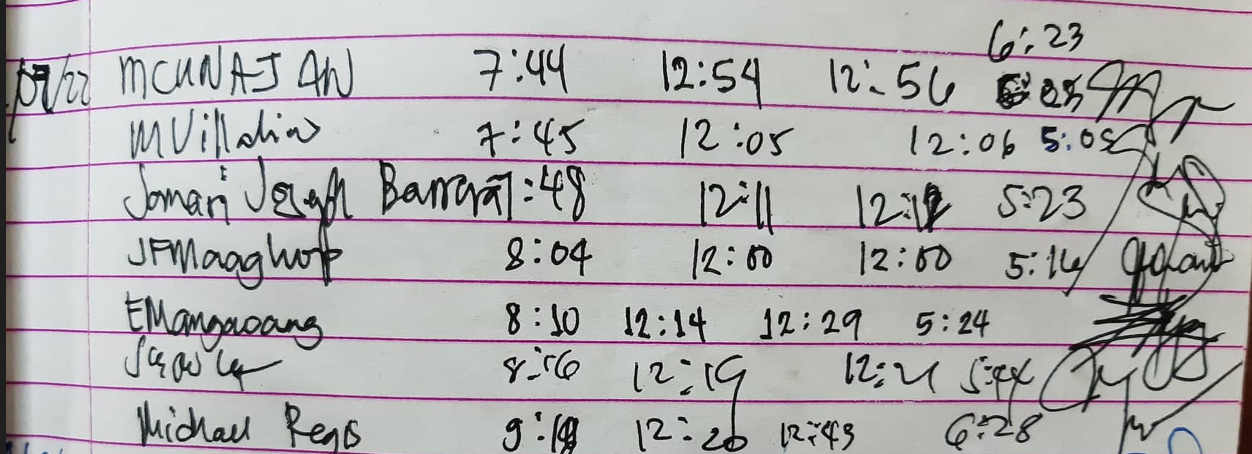 6:23
07/22 MCUNAJAN 7:44 12:54 12:56
MVillalino 7:45 12:05 12:06 5:05
Jomari Joseph Barrera 7:48 12:11 12:12 5:23
JFMaaghop 8:04 12:00 12:00 5:14
EMangaoang 8:10 12:14 12:29 5:24
8:16 12:19 12:21 5:44
Michael Regis 9:18 12:20 12:43 6:28